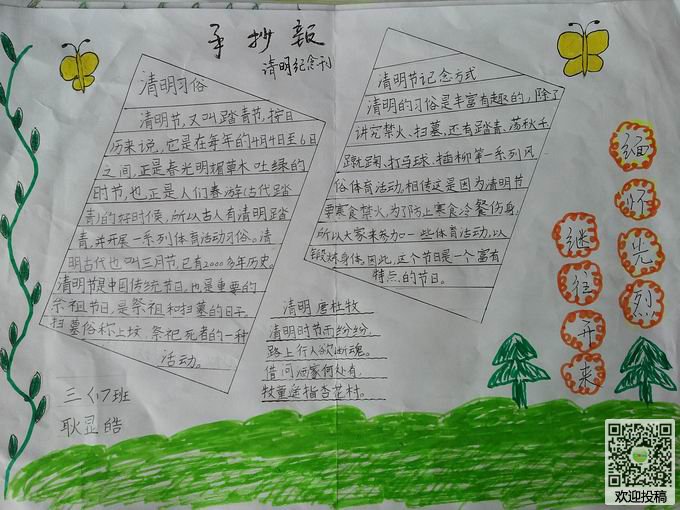 手抄报
清明纪念刊
清明习俗
清明节,又叫踏青节,按日
历来说,它是在每年的4月4日至6日
之间,正是春光明媚草木吐绿的
时节,也正是人们春游(古代踏
青)的好时候,所以古人有清明踏
青,并开展一系列体育活动习俗。清
明古代也叫三月节,已有2000多年历史。
清明节是中国传统节日,也是重要的
祭祖节日,是祭祖和扫墓的日子。
扫墓俗称上坟,祭祀死者的一种
活动。
三(1)班
耿显皓
清明节记念方式
清明的习俗是丰富有趣的,除了
讲究禁火、扫墓,还有踏青、荡秋千、
蹴踘、打马球、插柳第一系列风
俗体育活动。相传这是因为清明节
要寒食禁火,为了防止寒食冷餐伤身,
所以大家来参加一些体育活动,以
锻炼身体。因此,这个节日是一个富有
特点的节日。
清明 唐杜牧
清明时节雨纷纷,
路上行人欲断魂。
借问酒家何处有,
牧童遥指杏花村。
缅怀光烈
继往开来
欢迎投稿